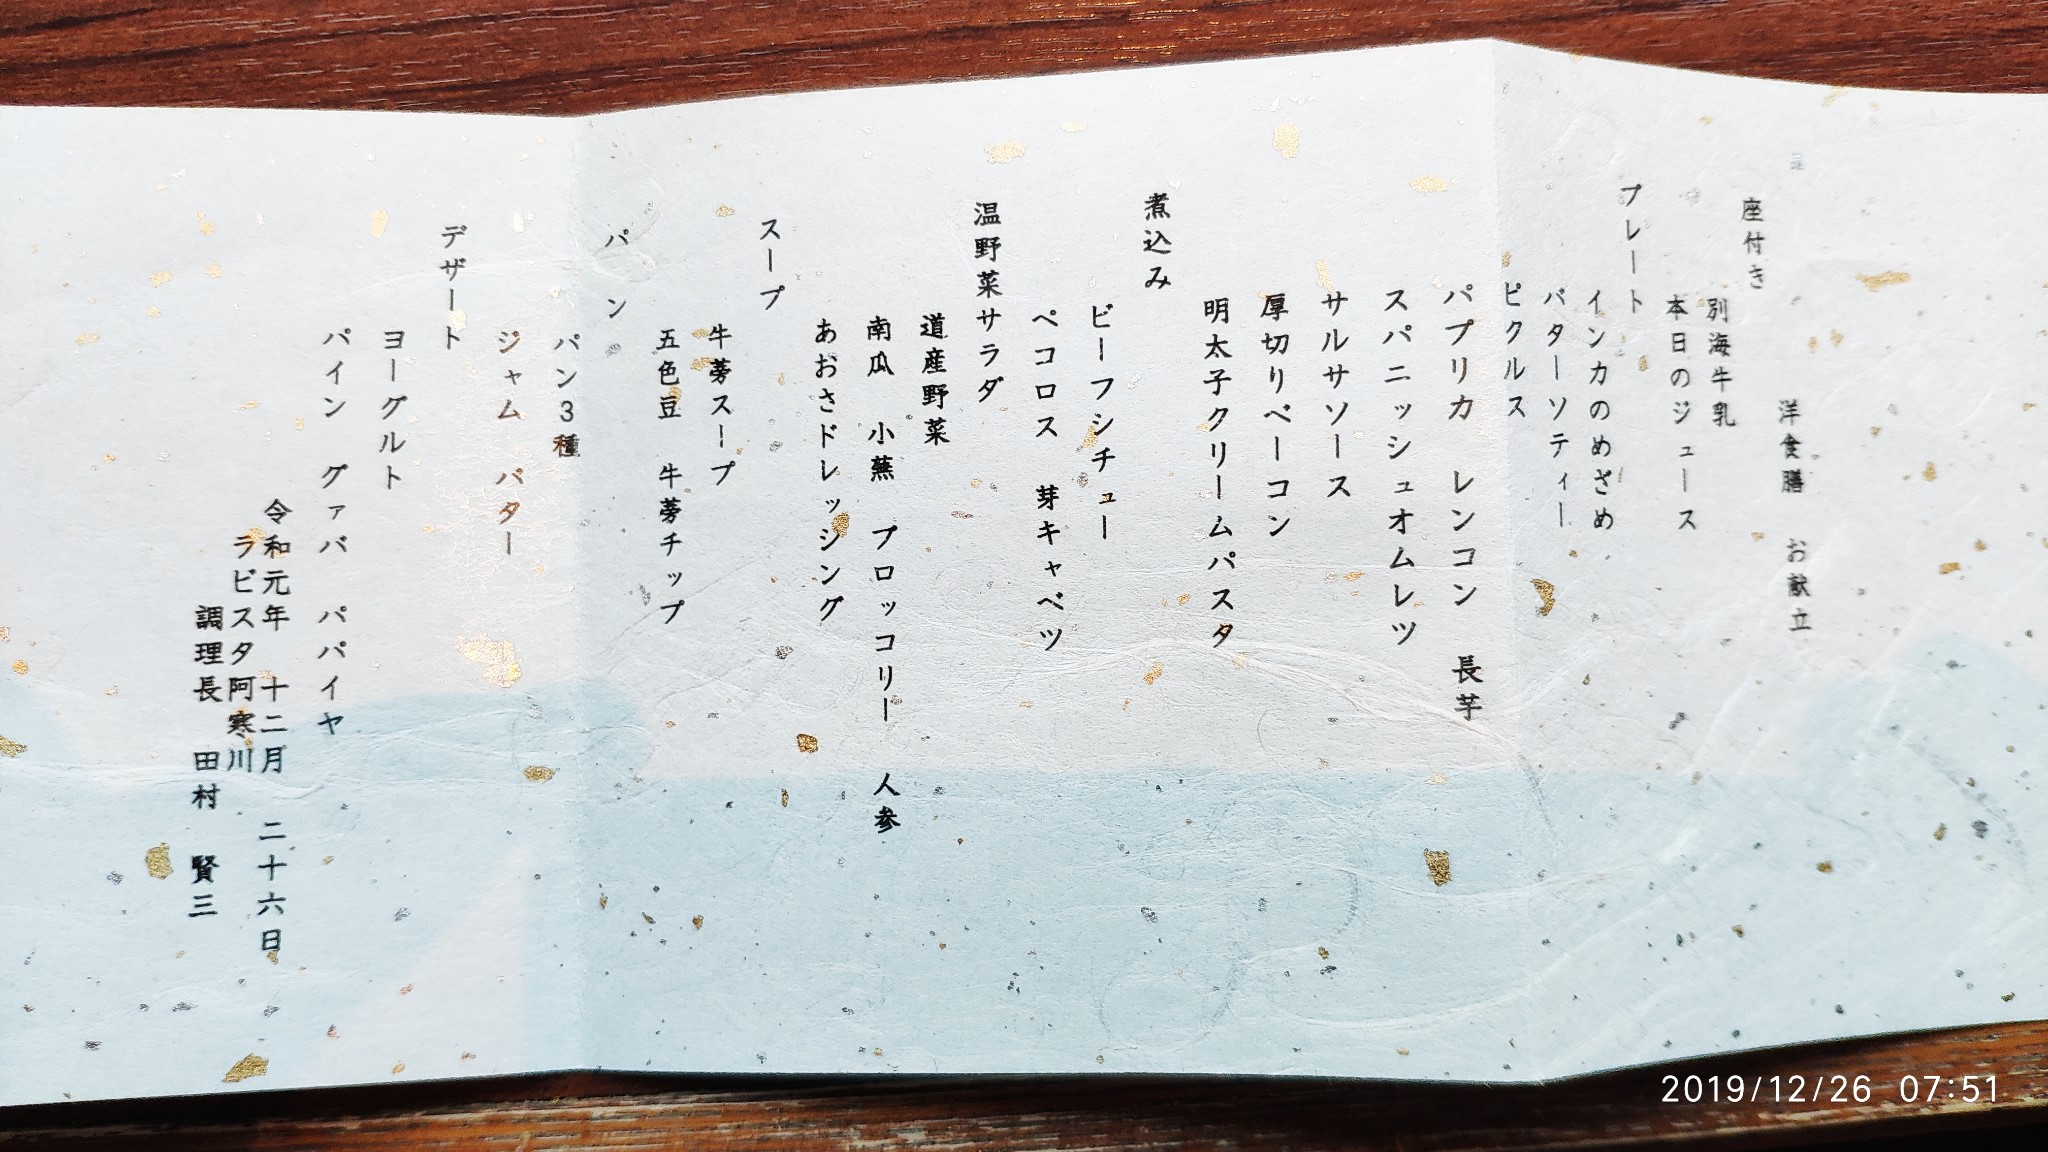 洋食膳　お献立
座付き
別海牛乳
本日のジュース
プレート
インカのめざめ
バターソティー
ピクルス
パプリカ　レンコン　長芋
スパニッシュオムレツ
サルサソース
厚切りベーコン
明太子クリームパスタ
煮込み
ビーフシチュー
ペコロス　芽キャベツ
温野菜サラダ
道産野菜
南瓜　小蕪　ブロッコリー　人参
あおさドレッシング
スープ
牛蒡スープ
五色豆　牛蒡チップ
パン
パン３種
ジャム　バター
デザート
ヨーグルト
パイン　グァバ　パパイヤ
令和元年　十二月　二十六日
ラビスタ阿寒川
調理長　田村　賢三
2019/12/26 07:51